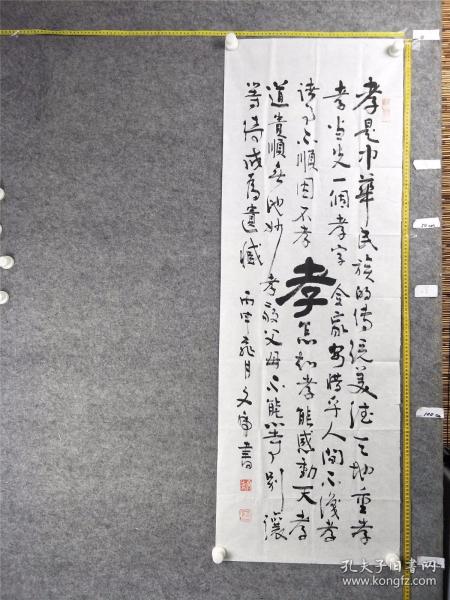 孝是中華民族的傳統美德天地重孝
孝當先一個孝字全家安 人間不 孝
諸事不順因不孝 孝 怎知孝能感動天孝
道貴順無他妙 孝敬父母不能等別讓
等待成為遺憾 丙申 月文 書
50cm
100cm
孔夫子旧书网
www.kongfz.com